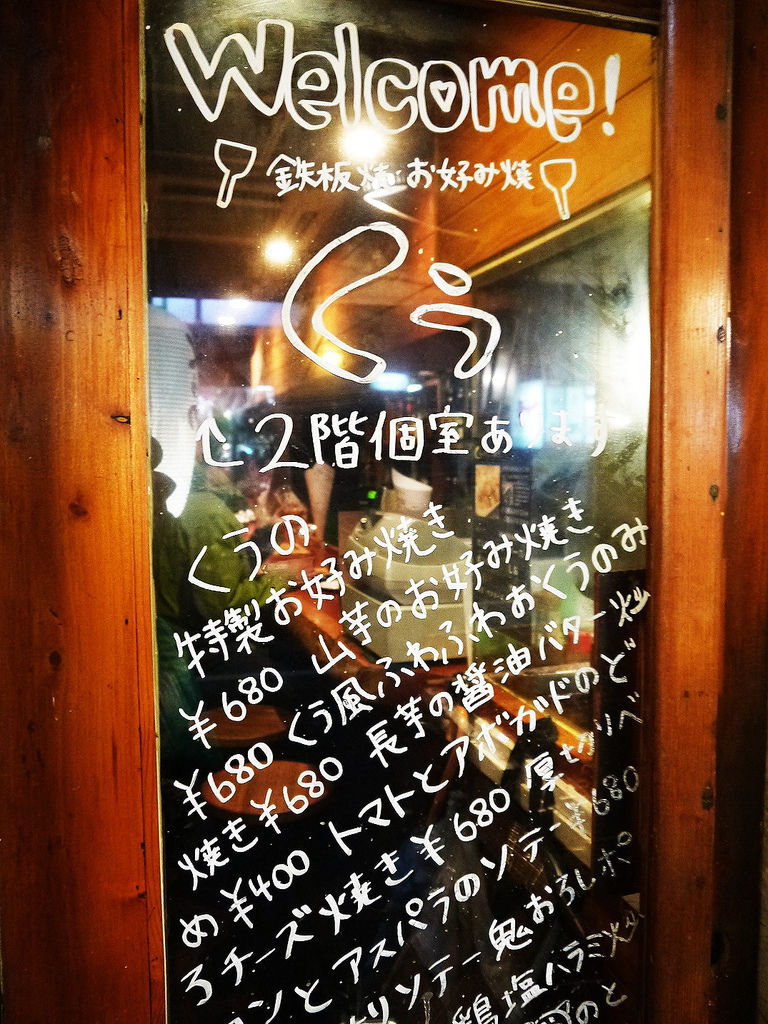 Welcome!
鉄板焼 お好み焼
くう
2階個室あります
くうの
特製お好み焼き
¥680 山芋のお好み焼き
¥680 くう風ふわふわおくうのみ
焼き¥680 長芋の醤油バター炒
め ¥400 トマトとアボガドのど
ろチーズ焼き¥680 厚切りベ
コンとアスパラのソテー¥680
ソテー 鬼おろしポ
鶏塩ハラミ
のと